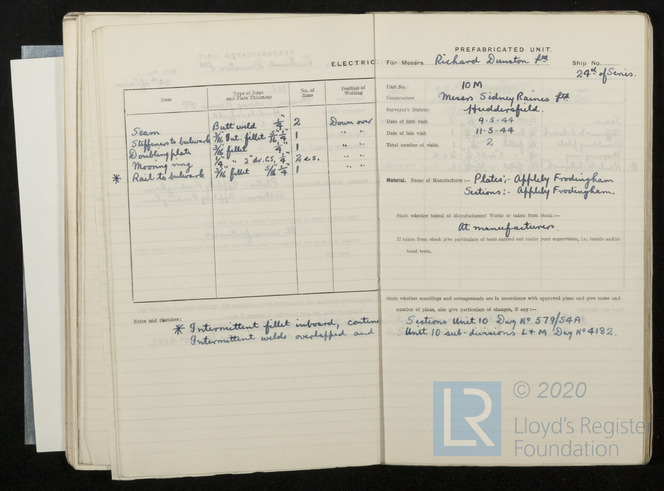 ELECTRIC
Item
Type of Joint and Plate Thickness
No. of Runs
Position of Welding
Seam Butt weld 1/4" 2 Down over
Stiffeners to bulwark 3/16 Int. fillet 1/4" 1 " "
Doubling plate 3/16 fillet 1/4" 1 " "
Mooring ring 1/4 " 2 " "
* Rail to bulwark 3/16 fillet 5/16 1/4" 1
Notes and Sketches:
* Intermittent fillet inboard, contin
Intermittent welds overlapped and
PREFABRICATED UNIT.
For Messrs. Richard Dunston Ltd Ship No.
24th of Series.
Unit No. 10M
Constructors Messrs Sidney Raines Ltd
Surveyor's District Huddersfield.
Date of first visit 9.5.44
Date of last visit 11.5.44
Total number of visits 2
Material. Name of Manufacturer:— Plates:- Appleby Frodingham
Sections:- Appleby Frodingham.
State whether tested at Manufacturers' Works or taken from stock:—
At manufacturers.
If taken from stock give particulars of tests carried out under your supervision, i.e. tensile and/or
bend tests.
State whether scantlings and arrangements are in accordance with approved plans and give name and
number of plans, also give particulars of changes, if any:—
Sections Unit 10 Dwg No 579/54A
Unit 10 sub-divisions L+M Dwg No 4182.
© 2020
LR
Lloyd's Register
Foundation